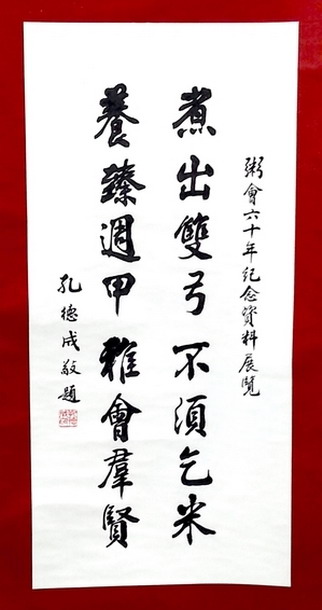 粥會六十年紀念資料展覽
煮出雙弓不須乞米
養臻週甲雅會羣賢
孔德成敬題